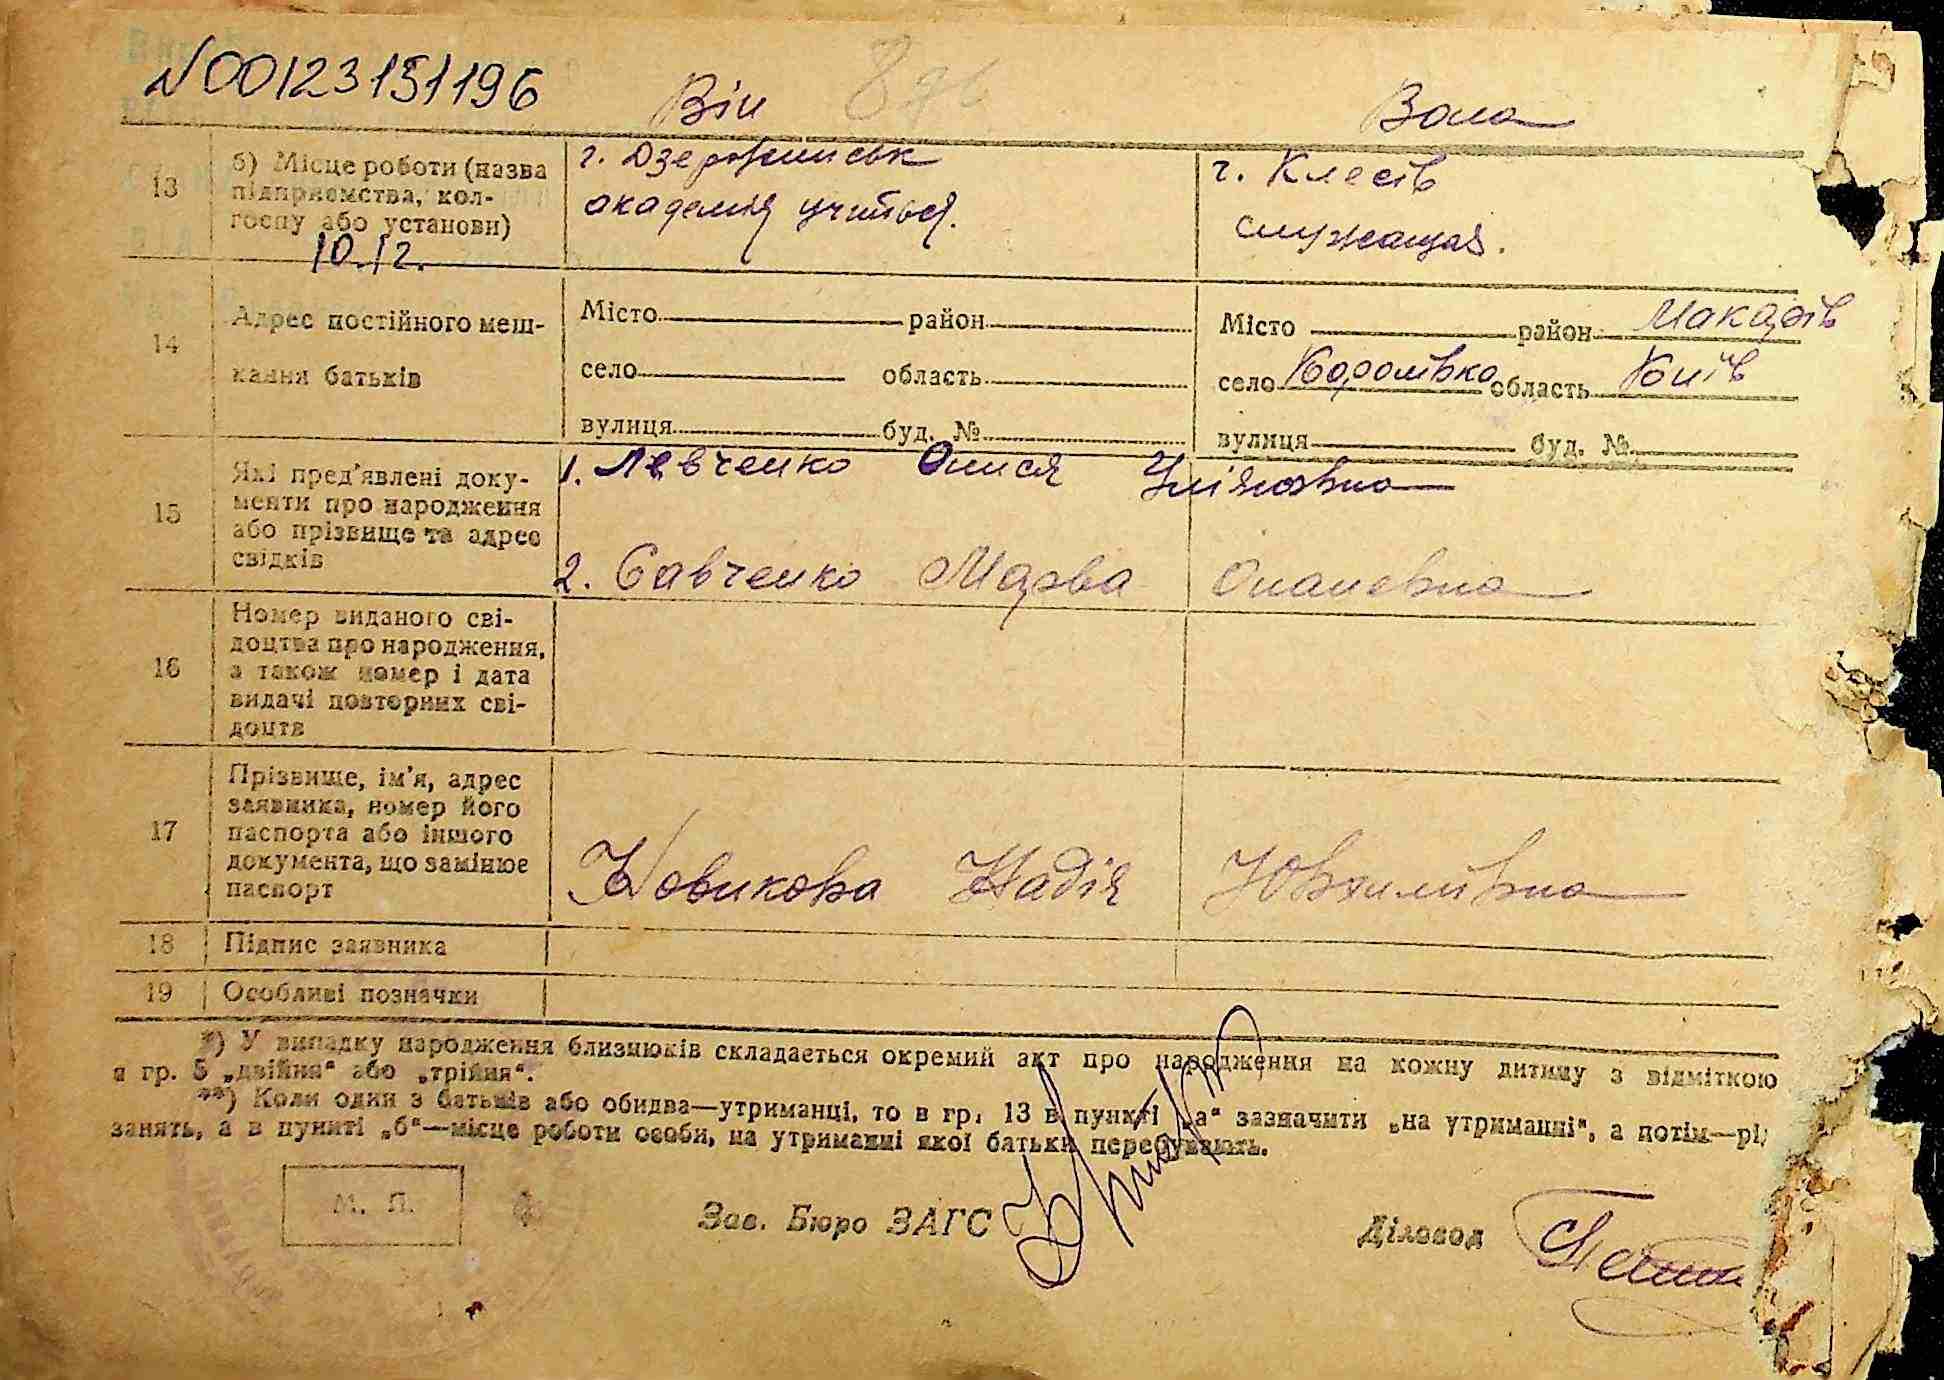 №00123151196
Він Вона
13 б) Місце роботи (назва підприємства, колгоспу або установи)
10.12.
г. Дзержинськ
академия учиться.
г. Клесів
служащая.
14 Адрес постійного мешкання батьків
Місто район
село область
вулиця буд. №
Місто район Макарів
село Королівка область Київ
вулиця буд. №
15 Які пред'явлені документи про народження або прізвище та адрес свідків
1. Левченко Онися
2. Савченко Марва
16 Номер виданого свідоцтва про народження, а також номер і дата видачі повторних свідоцтв
17 Прізвище, ім'я, адрес заявника, номер його паспорта або іншого документа, що замінює паспорт
Новикова Надія
18 Підпис заявника
19 Особливі позначки
*) У випадку народження близнюків складається окремий акт про народження на кожну дитину з відміткою
в гр. 5 „двійня“ або „трійня“.
**) Коли один з батьків або обидва—утриманці, то в гр. 13 в пункті „а“ зазначити „на утриманні“, а потім—рід
занять, а в пункті „б“—місце роботи особи, на утриманні якої батьки перебувають.
М. П.
Зав. Бюро ЗАГС
Діловод